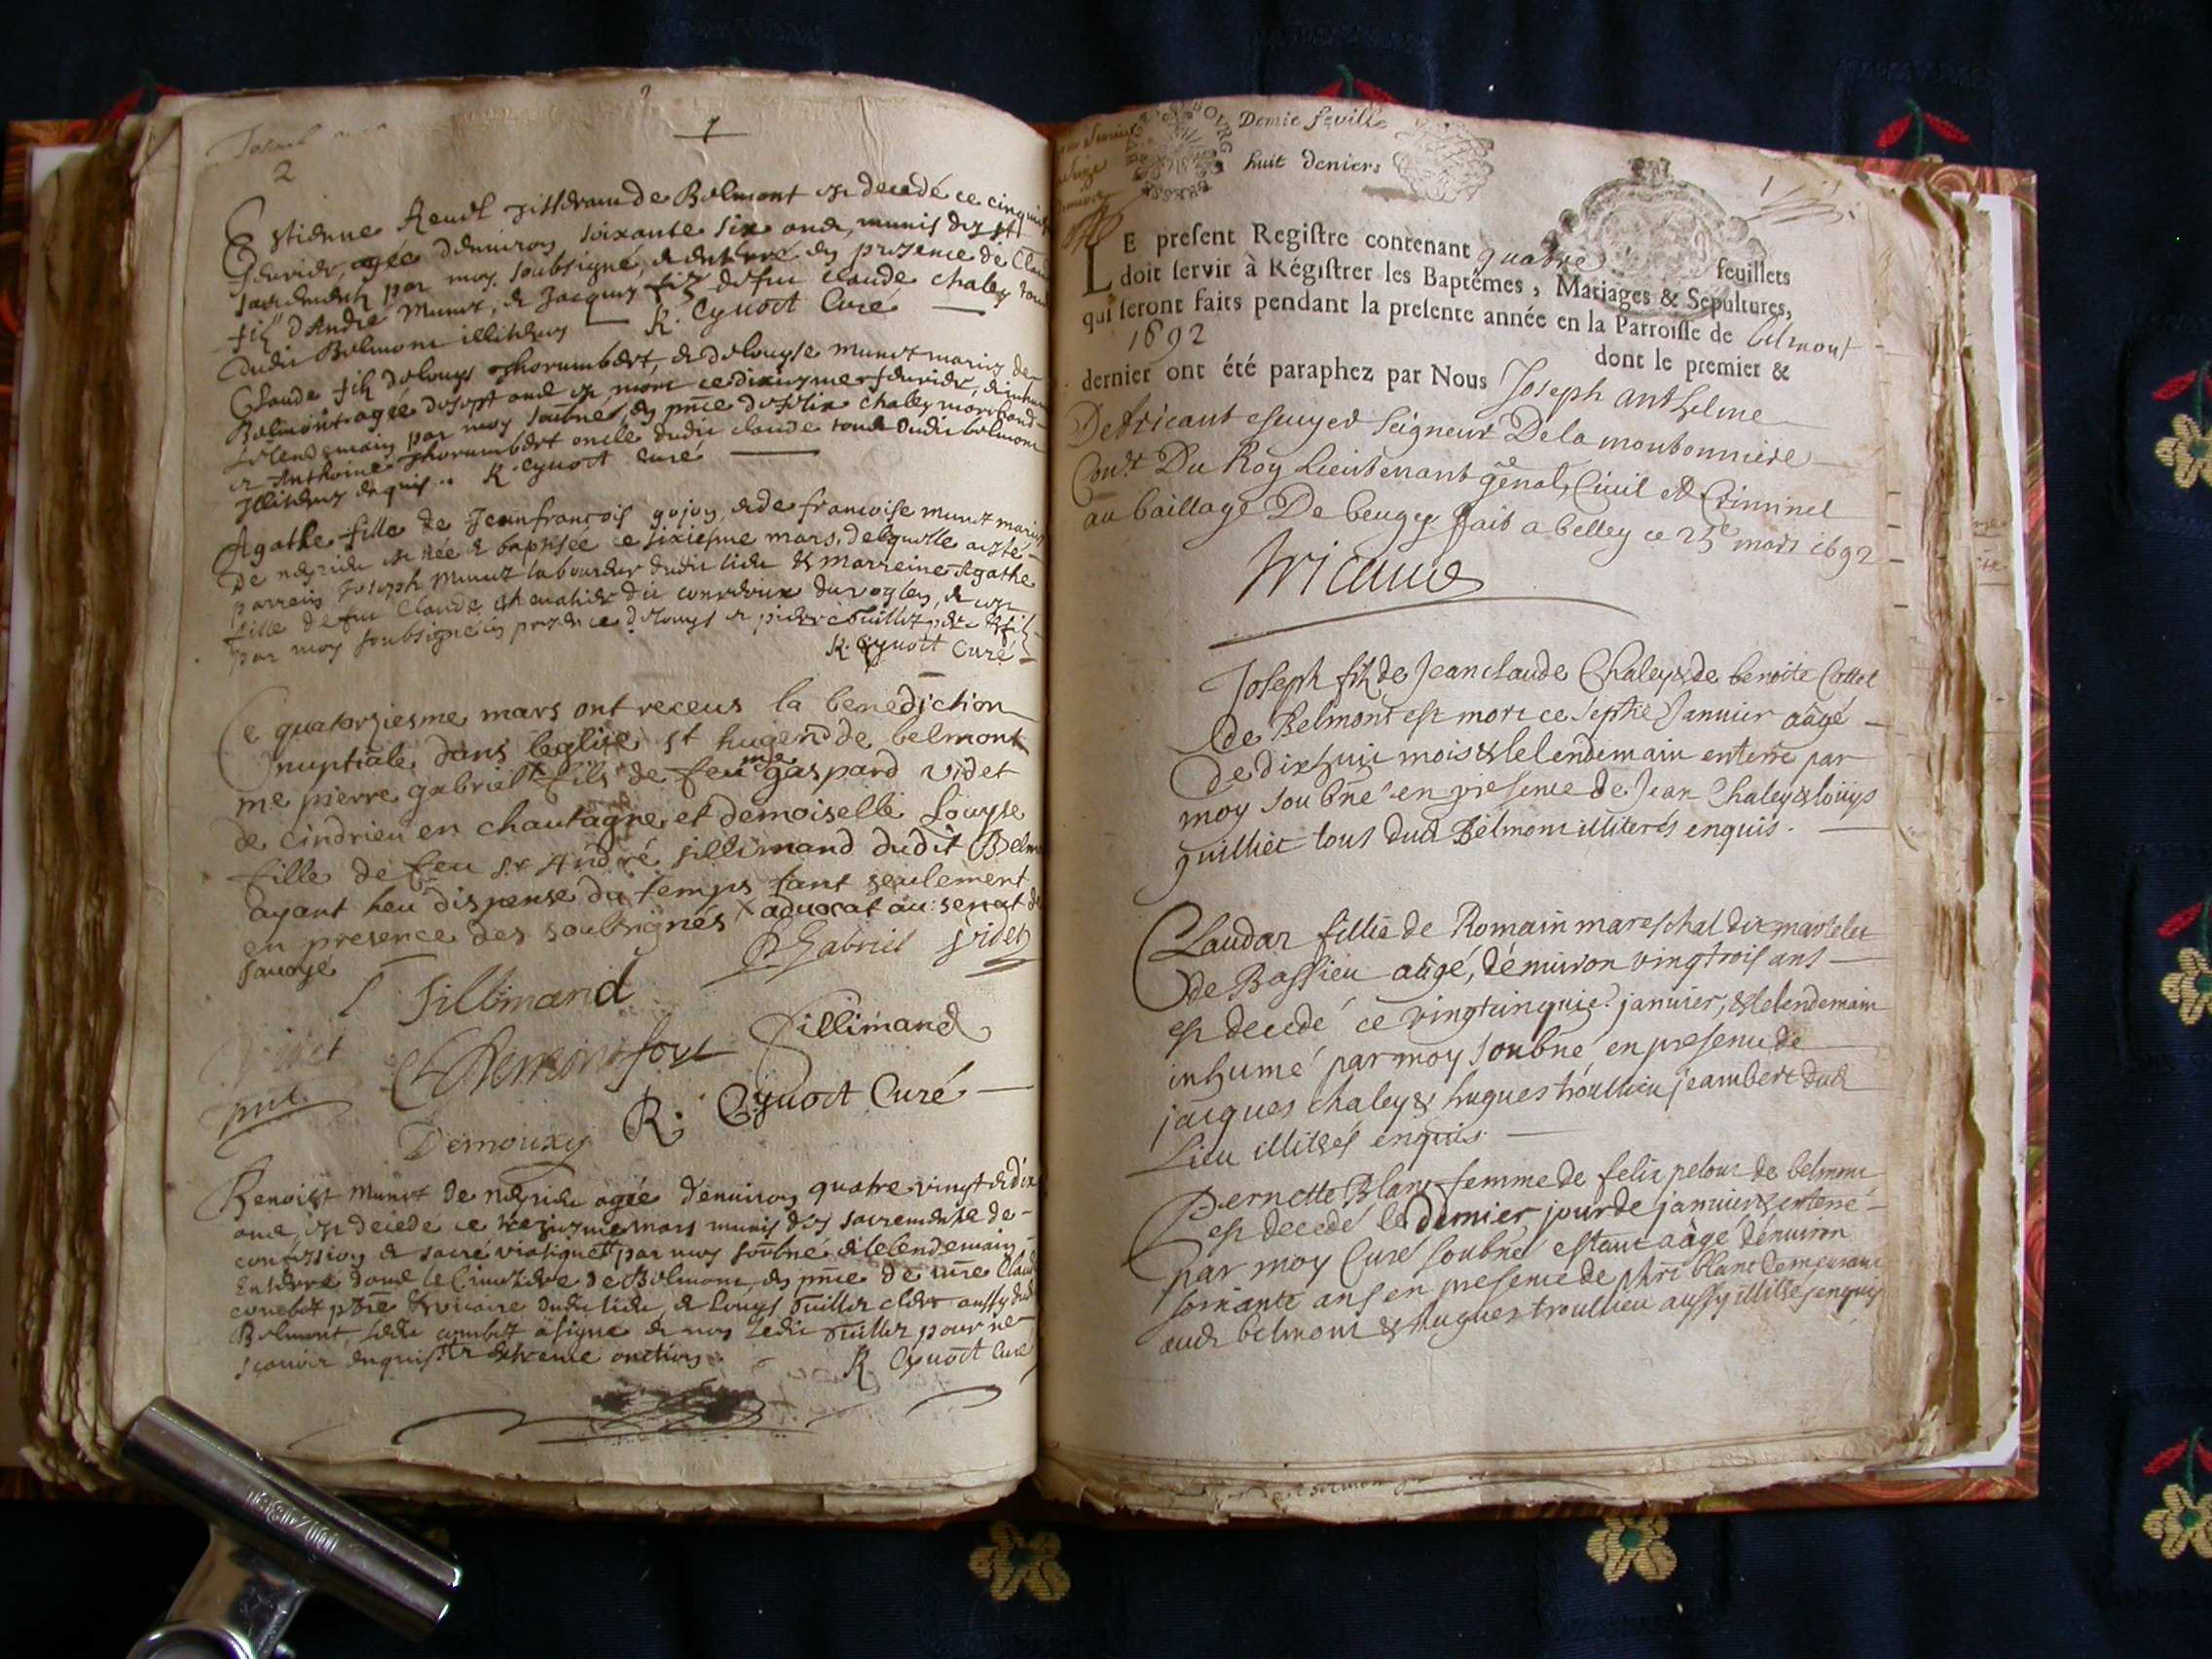 2
Estienne Rendl de Belmont est decedé ce cinquies
feurier, agée denuiron soixante six ans, munis des sts
sacrements par moy soubsigné, & enterré en presence de Clau
fils d'André Munet, & Jacques fils de feu Claude Chaley tous
dudit Belmont illiteres R. Cynoct Curé
Claude fils de Louys Thorumbert, & de Louyse Munet mariez de
Belmont agée de sept ans est mort ce dixiesme feurier, & inhu
le lendemain par moy soubne en pnce de felix Chaley
& Anthoine Thorumbert oncle dudit Claude tous dudit belmont
Illiteres enquis.. R. Cynoct Curé
Agathe fille de Jeanfrancois gojon, & de francoise Munet mariez
De est née & baptisée ce sixiesme mars, delaquelle a esté
parrein Joseph Munet laboureur dudit lieu & marreine Agathe
fille de feu Claude Cheualier dit du
par moy soubsigné en presence de Louys & pierre Guillet pere & fils
R. Cynoct Curé
Ce quatorziesme mars ont receus la benediction
nuptiale dans leglise st hugend de belmont
me pierre gabriel fils de feu me gaspard videt
de cindrieu en chautagne et demoiselle Louyse
fille de feu sr André sillimand dudit Belm
ayant heu dispense du temps tant seulement
en presence des soubsignés x aduocat au senat de
sauoye
P Gabriel Videt
Sillimand
Sillimand
Videt
pnt
R. Cynoct Curé
Demouxy
Benoist Munet de agée denuiron quatre vingt & dix
ans, est decedé ce treziesme mars munis des sacrements de
confession & sacré viatique par moy soubné & le lendemain
Enterré dans le Cimetiere de Belmont en pnce de mre Claud
combet ptre & vicaire dudit lieu, & Louys Guillet clerc aussy dud
Belmont, ledit combet a signé & non ledit Guillet pour ne
scauoir enquis extreme onction
R Cynoct Curé
Demie feuille
huit deniers
LE present Registre contenant quatre feuillets
doit servir à Régistrer les Baptêmes, Mariages & Sepultures,
qui seront faits pendant la presente année en la Parroisse de belmont
1692 dont le premier &
dernier ont été paraphez par Nous Joseph anthelme
Detricaut escuyer seigneur De la monbonniere
Conr Du Roy Lieutenant genal, Ciuil et Criminel
au bailliage De beugey fait a belley ce 25e mars 1692
Tricaud
Joseph fils de Jean claude Chaley & de benoite Cottet
de Belmont est mort ce septie Januier aagé
de dixhuit mois & le lendemain enterré par
moy soubne en presence de Jean Chaley & loüys
guilliet tous dud Belmont illiterés enquis.
Claudaz fillie de Romain mareschal dit
de Bassieu aâgé, dénuiron vingtrois ans
est decedé ce vingtcinquie januier, & le lendemain
inhumé par moy soubné en presence de
jacques Chaley & hugues troullieu jeambert dud
Lieu illiterés enquis
Pernette Blanc femme de felix pelous de belmont
est decedé le dernier jour de januier & enterré
par moy Curé soubné estant aâgé dénuiron
soixante ans en presence de blanc demeurant
aud belmont & hugues troullieu aussy illiterés enquis